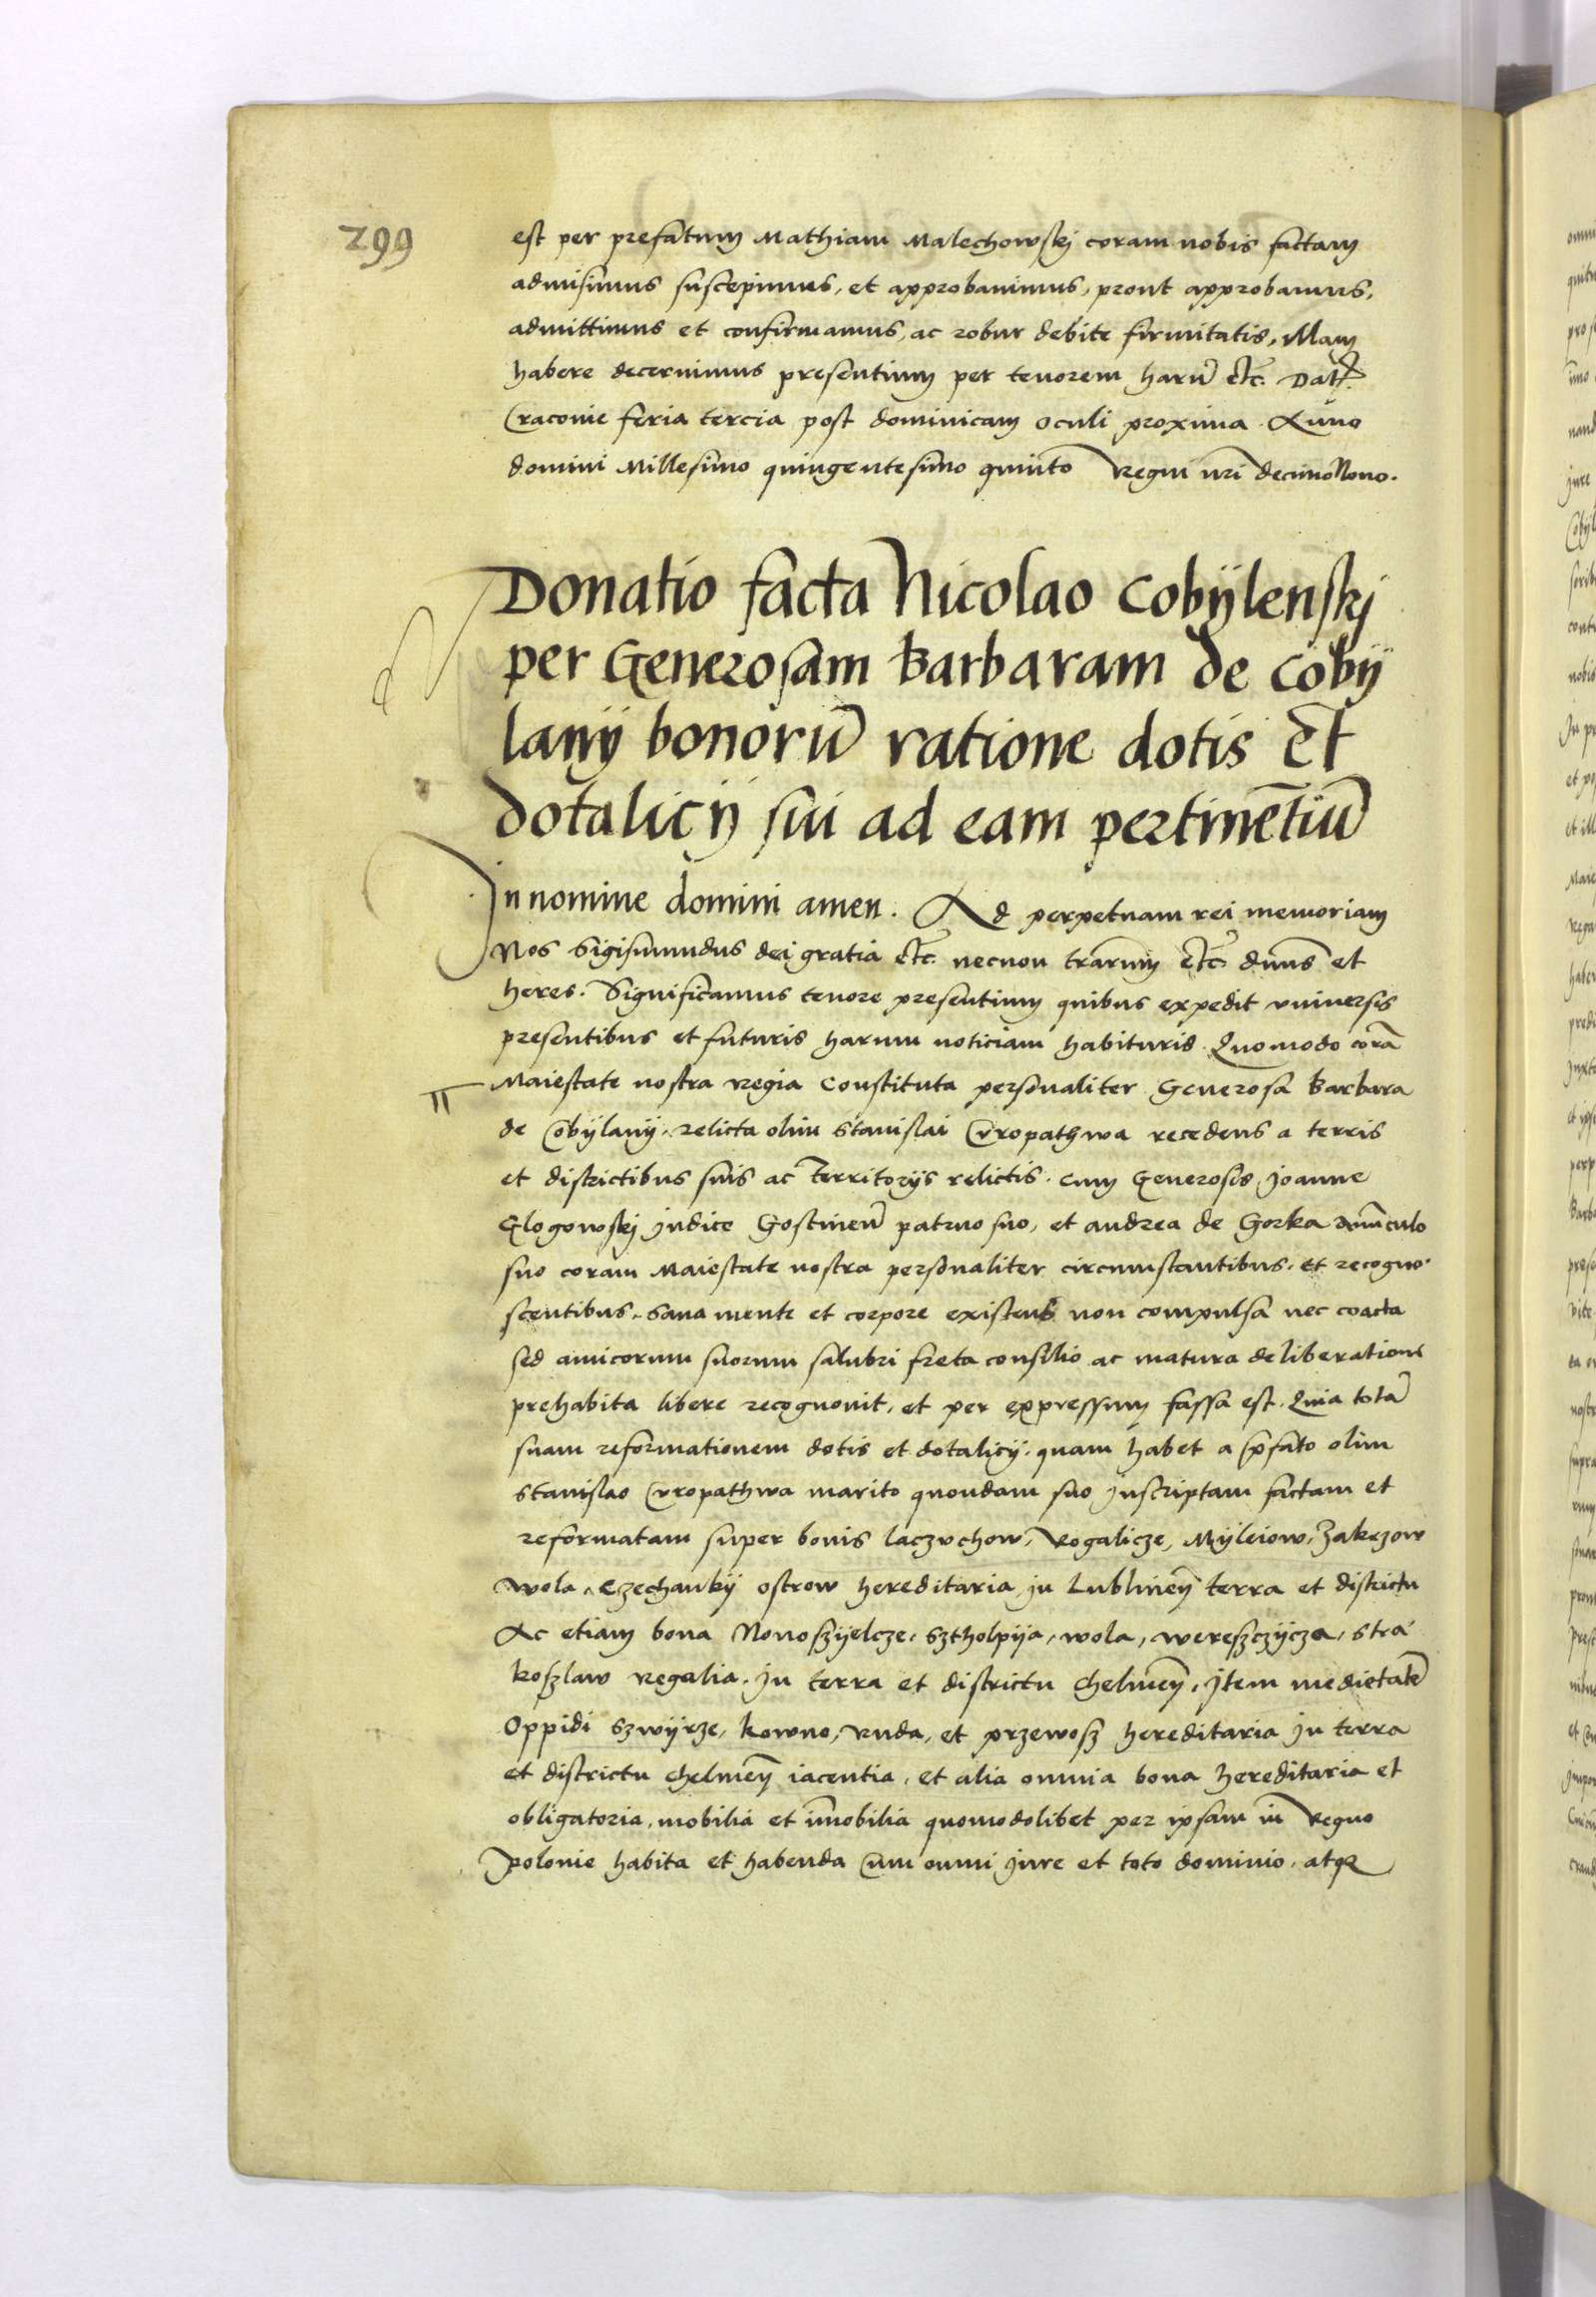 299
est per prefatum Mathiam Malechowskj coram nobis factam
admisimus suscepimus, et approbauimus, prout approbamus,
admittimus et confirmamus, ac robur debite firmitatis, Illam
habere decernimus presentium per tenorem harũ etc̃. Dat̃.
Cracouie feria tercia post dominicam oculi proxima. Anno
domini Millesimo quingentesimo quinto Regni nr̃i decimoNono.
Donatio facta Nicolao Cobÿlenskj
per Generosam Barbaram de Cobÿ
lanÿ bonorũ ratione dotis Et
dotalicÿ sui ad eam pertinẽtiũ
In nomine domini amen. Ad perpetuam rei memoriam
Nos Sigismundus dei gratia etc̃. necnon tr̃arum etc̃. dñus et
heres. Significamus tenore presentium quibus expedit vniuersis
presentibus et futuris harum noticiam habituris. Quomodo corã
Maiestate nostra Regia Constituta personaliter Generosa Barbara
de Cobÿlanÿ, relicta olim Stanislai Cropathwa recedens a terris
et districtibus suis ac territorÿs relictis. cum Generosis Joanne
Glogowskj Judice Gostineñ patruo suo, et andrea de Gorka auũculo
suo coram Maiestate nostra personaliter circumstantibus, et recogno
scentibus, Sana mente et corpore existens non compulsa nec coacta
sed amicorum suorum salubri freta consilio ac matura deliberatione
prehabita libere recognouit, et per expressum fassa est. Quia totã
suam reformationem dotis et dotalicÿ, quam habet a p̃fato olim
Stanislao Cropathwa marito quondam suo Inscriptam factam et
reformatam super bonis laczuchow, Rogalicze, Mÿleiow, Zakrzow
wola, Czechankÿ ostrow hereditaria, in Lublineñ terra et districtu
Ac etiam bona Nouoszÿelcze, Sztholpÿa, wola, wereszczÿcza, stra
koszlaw Regalia, in terra et districtu Chelmeñ, Item medietatẽ
Oppidi Szwÿrze, kowno, Ruda, et przewosz hereditaria in terra
et districtu Chelmeñ iacentia, et alia omnia bona hereditaria et
obligatoria, mobilia et im̃obilia quomodolibet per ipsam in Regno
Polonie habita et habenda Cum omni iure et toto dominio, atqꝫ